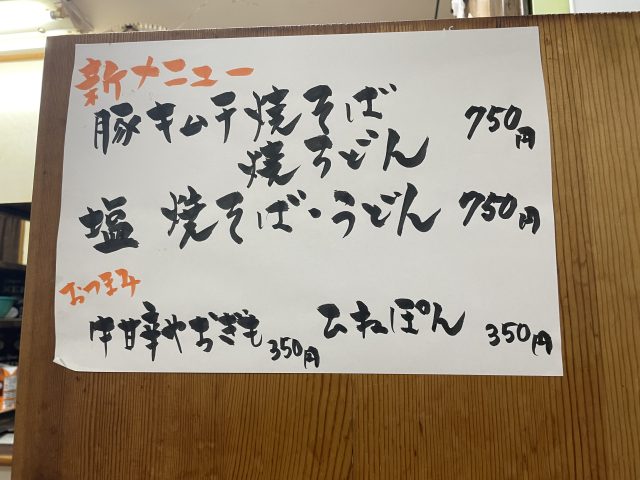 新メニュー
豚キムチ焼そば 750円
焼うどん
塩 焼そば・うどん 750円
おつまみ
牛甘辛やおぎも 350円 ひねぽん 350円